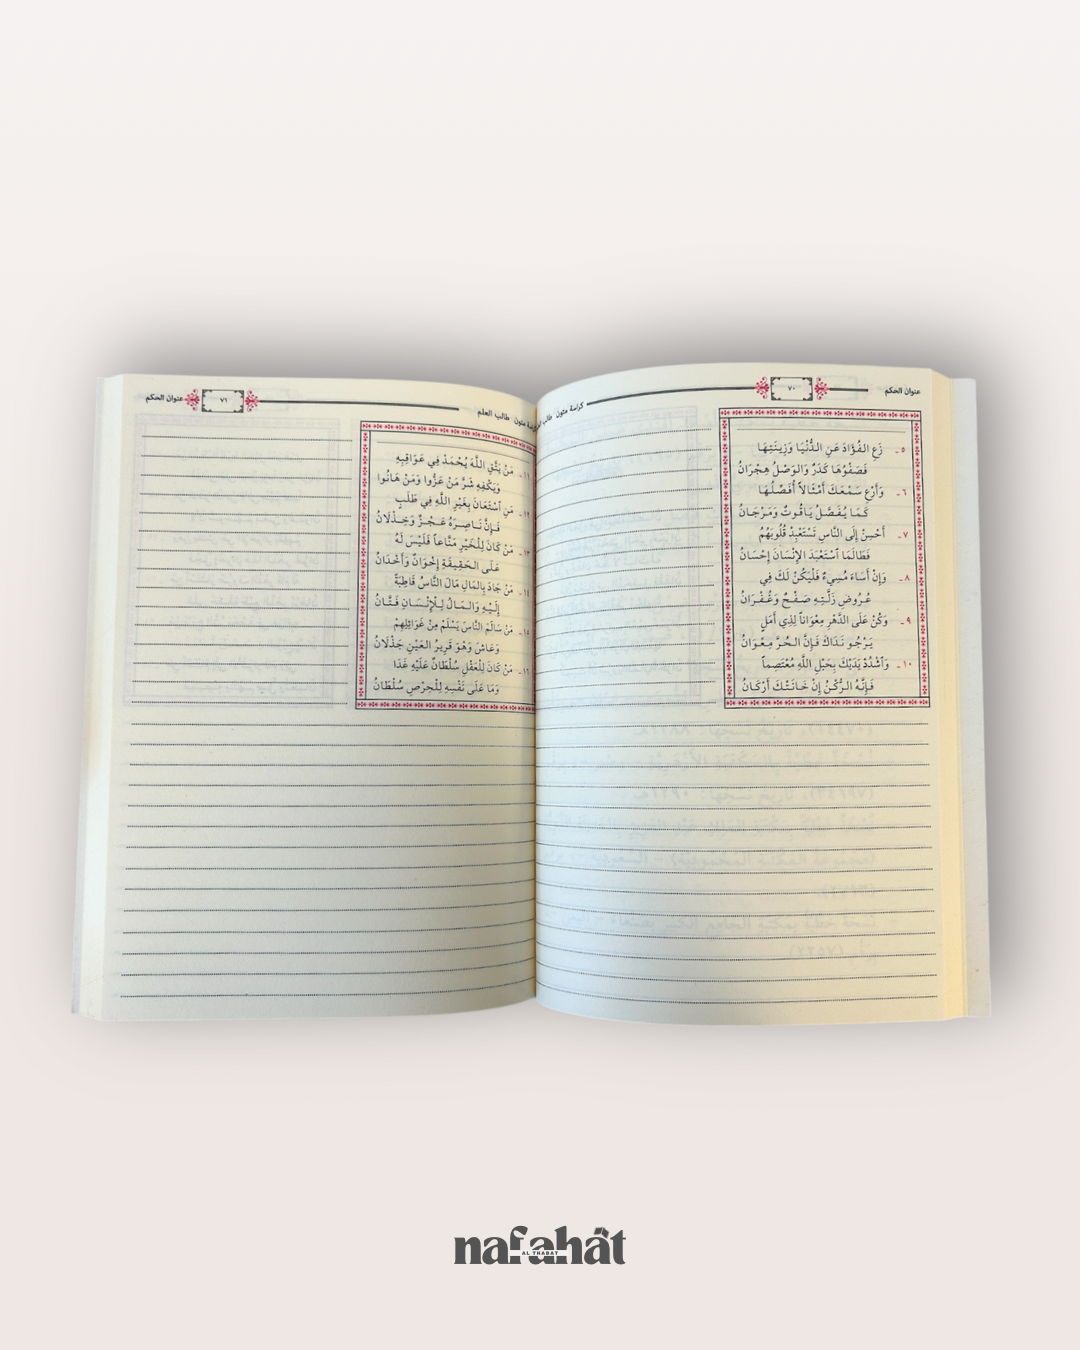 عنوان الحكم
٧٠
كراسة متون طالب
٥ـ زَعِ الفُؤَادَ عَنِ الدُّنْيَا وَزِينَتِهَا
فَصَفْوُهَا كَدَرٌ وَالوَصْلُ هِجْرَانُ
٦ـ وَأَرْعِ سَمْعَكَ أَمْثَالاً أُفَصِّلُهَا
كَمَا يُفَصَّلُ يَاقُوتٌ وَمَرْجَانُ
٧ـ أَحْسِنْ إِلَى النَّاسِ تَسْتَعْبِدْ قُلُوبَهُمُ
فَطَالَمَا اسْتَعْبَدَ الإِنْسَانَ إِحْسَانُ
٨ـ وَإِنْ أَسَاءَ مُسِيءٌ فَلْيَكُنْ لَكَ فِي
عُرُوضِ زَلَّتِهِ صَفْحٌ وَغُفْرَانُ
٩ـ وَكُنْ عَلَى الدَّهْرِ مِعْوَاناً لِذِي أَمَلٍ
يَرْجُو نَدَاكَ فَإِنَّ الحُرَّ مِعْوَانُ
١٠ـ وَاشْدُدْ يَدَيْكَ بِحَبْلِ اللَّهِ مُعْتَصِماً
فَإِنَّهُ الرُّكْنُ إِنْ خَانَتْكَ أَرْكَانُ
متون طالب العلم
٧١
عنوان الحكم
١١ـ مَنْ يَتَّقِ اللَّهَ يُحْمَدْ فِي عَوَاقِبِهِ
وَيَكْفِهِ شَرَّ مَنْ عَزُّوا وَمَنْ هَانُوا
١٢ـ مَنِ اسْتَعَانَ بِغَيْرِ اللَّهِ فِي طَلَبٍ
فَإِنَّ نَاصِرَهُ عَجْزٌ وَخِذْلَانُ
١٣ـ مَنْ كَانَ لِلْخَيْرِ مَنَّاعاً فَلَيْسَ لَهُ
عَلَى الحَقِيقَةِ إِخْوَانٌ وَأَخْدَانُ
١٤ـ مَنْ جَادَ بِالمَالِ مَالَ النَّاسُ قَاطِبَةً
إِلَيْهِ وَالمَالُ لِلْإِنْسَانِ فَتَّانُ
١٥ـ مَنْ سَالَمَ النَّاسَ يَسْلَمْ مِنْ غَوَائِلِهِمْ
وَعَاشَ وَهْوَ قَرِيرُ العَيْنِ جَذْلَانُ
١٦ـ مَنْ كَانَ لِلْعَقْلِ سُلْطَانٌ عَلَيْهِ غَدَا
وَمَا عَلَى نَفْسِهِ لِلْحِرْصِ سُلْطَانُ
nafahât
AL THABAT